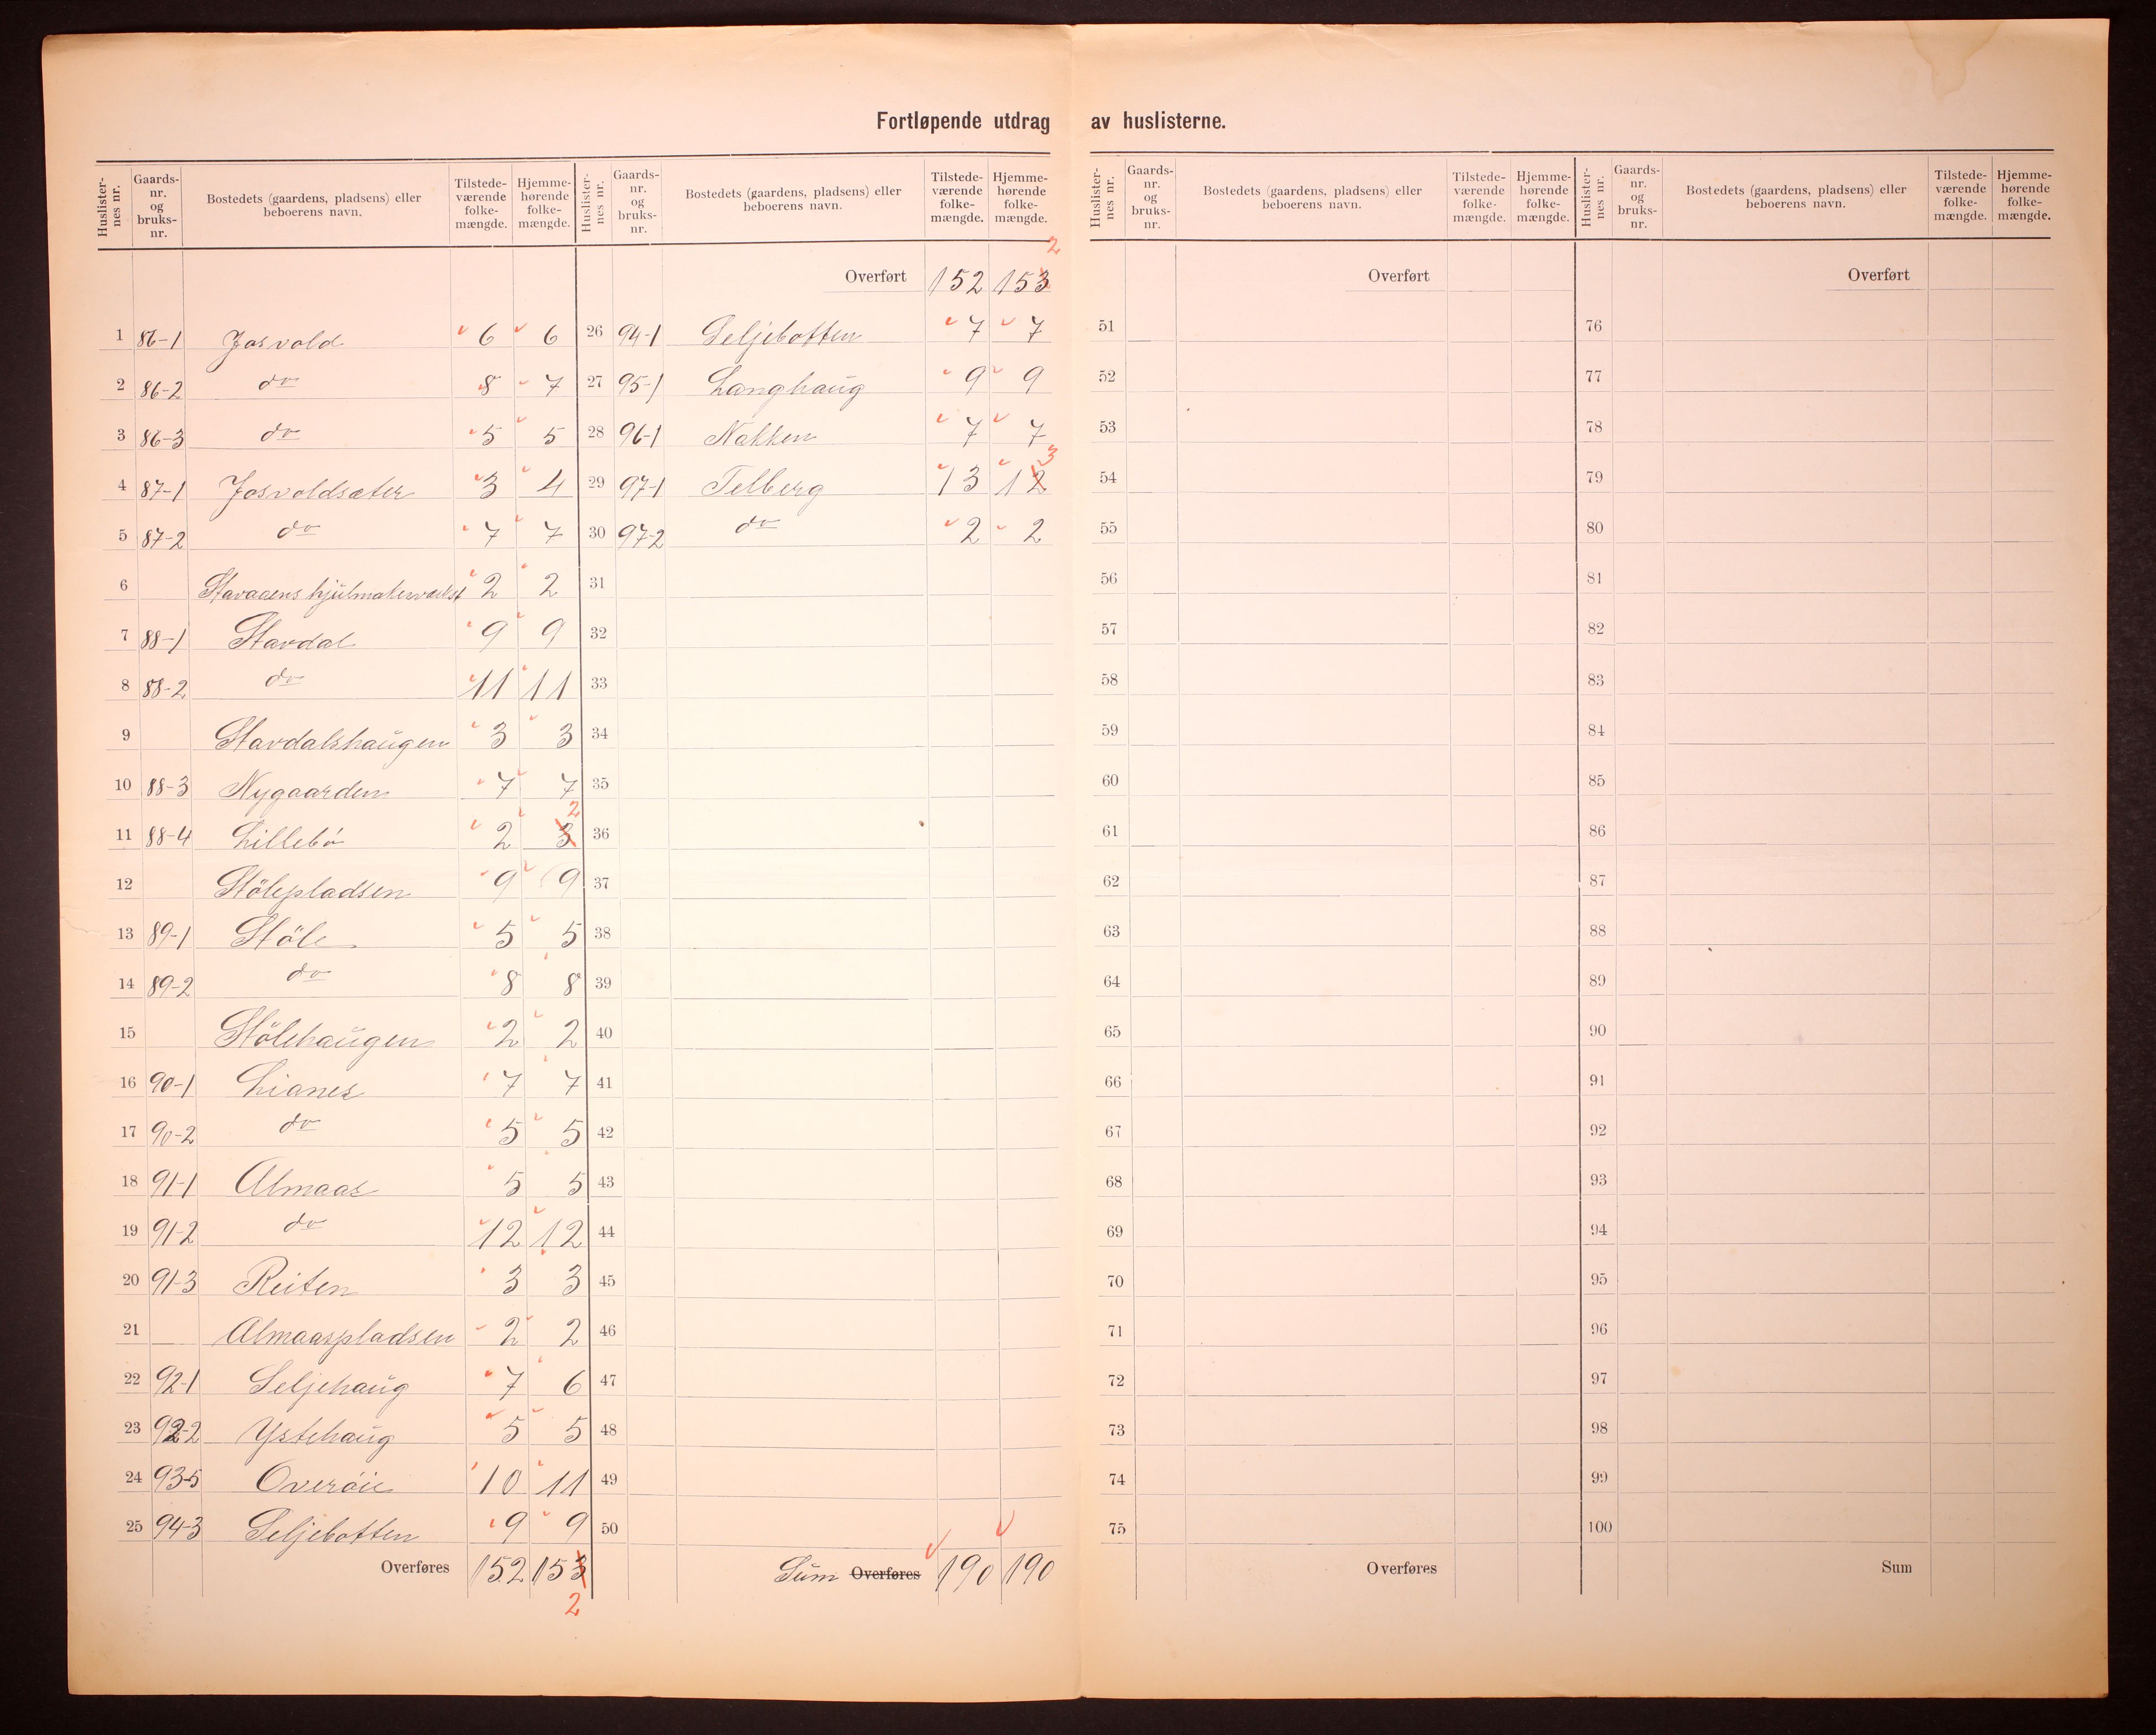 Fortløpende utdrag av huslisterne.
Huslister-nes nr. Gaards-nr. og bruks-nr. Bostedets (gaardens, pladsens) eller beboerens navn. Tilstede-værende folke-mængde. Hjemme-hørende folke-mængde.
1 86-1 Josvold 6 6
2 86-2 do 8 7
3 86-3 do 5 5
4 87-1 Josvoldsæter 3 4
5 87-2 do 7 7
6 Stavaaens hjulmakerværkst 2 2
7 88-1 Stavdal 9 9
8 88-2 do 11 11
9 Stavdalshaugen 3 3
10 88-3 Nygaarden 7 7
11 88-4 Lillebö 2 3 2
12 Stölepladsen 9 9
13 89-1 Stöle 5 5
14 89-2 do 8 8
15 Stölehaugen 2 2
16 90-1 Lianes 7 7
17 90-2 do 5 5
18 91-1 Almaas 5 5
19 91-2 do 12 12
20 91-3 Reiten 3 3
21 Almaaspladsen 2 2
22 92-1 Seljehaug 7 6
23 92-2 Ystehaug 5 5
24 93-5 Overöie 10 11
25 94-3 Seljebotten 9 9
Overføres 152 153
2
Huslister-nes nr. Gaards-nr. og bruks-nr. Bostedets (gaardens, pladsens) eller beboerens navn. Tilstede-værende folke-mængde. Hjemme-hørende folke-mængde.
2
Overført 152 153
26 94-1 Seljebotten 7 7
27 95-1 Langhaug 9 9
28 96-1 Nakken 7 7
29 97-1 Telberg 13 12 3
30 97-2 do 2 2
31
32
33
34
35
36
37
38
39
40
41
42
43
44
45
46
47
48
49
50
Sum Overføres 190 190
Huslister-nes nr. Gaards-nr. og bruks-nr. Bostedets (gaardens, pladsens) eller beboerens navn. Tilstede-værende folke-mængde. Hjemme-hørende folke-mængde.
Overført
51
52
53
54
55
56
57
58
59
60
61
62
63
64
65
66
67
68
69
70
71
72
73
74
75
Overføres
Huslister-nes nr. Gaards-nr. og bruks-nr. Bostedets (gaardens, pladsens) eller beboerens navn. Tilstede-værende folke-mængde. Hjemme-hørende folke-mængde.
Overført
76
77
78
79
80
81
82
83
84
85
86
87
88
89
90
91
92
93
94
95
96
97
98
99
100
Sum